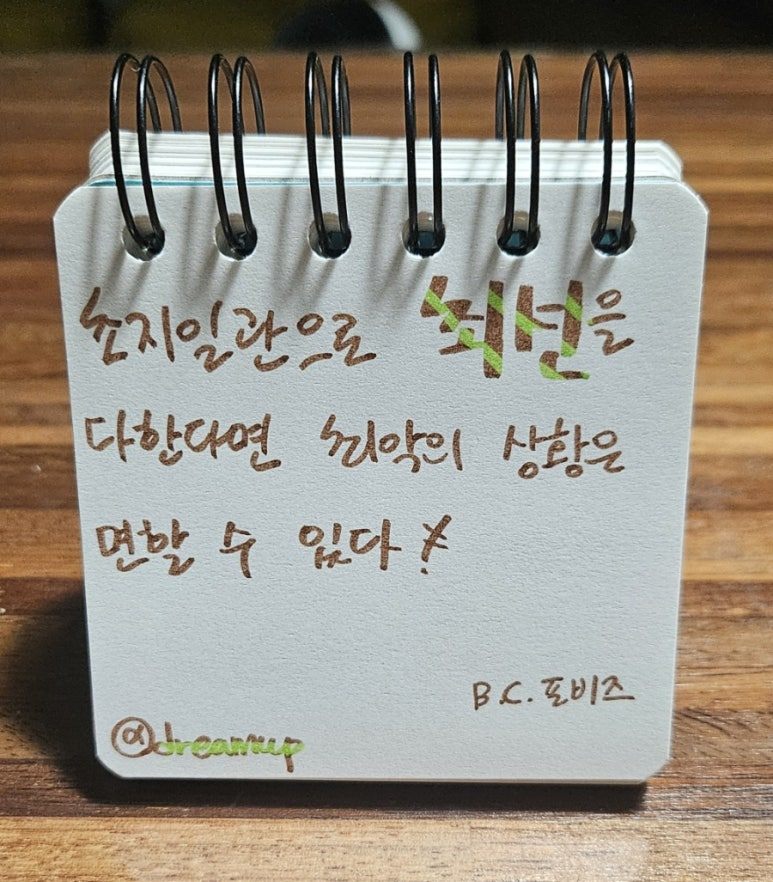 초지일관으로 최선을
다한다면 최악의 상황은
면할 수 있다!
B.C. 포비즈
@dreamup